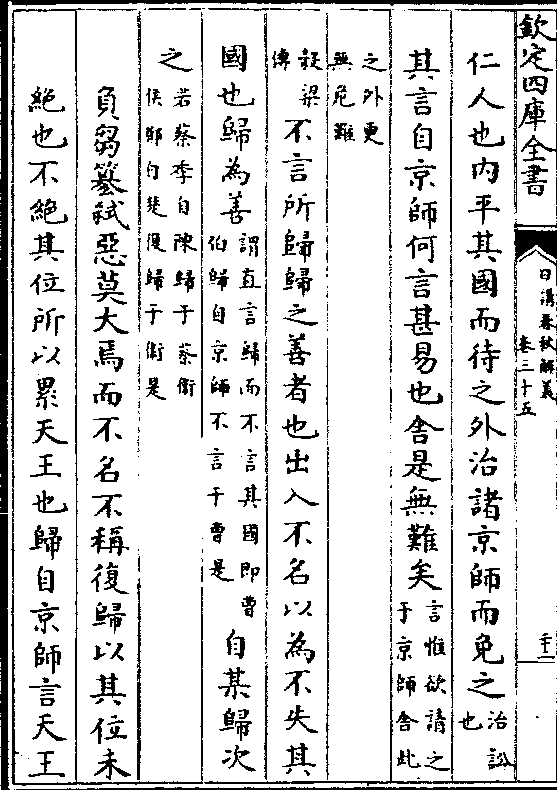 欽定四庫全書
日講春秋解義
卷三十五
仁人也內平其國而待之外治諸京師而免之治訟也
其言自京師何言甚易也舍是無難矣言惟欲請之于京師舍此
之外更無危難
穀梁傳不言所歸歸之善者也出入不名以為不失其
國也歸為善謂直言歸而不言其國即曹伯歸自京師不言于曹是自某歸次
之若蔡季自陳歸于蔡衛侯鄭自楚復歸于衛是
負芻簒弒惡莫大焉而不名不稱復歸以其位未
絕也不絕其位所以累天王也歸自京師言天王